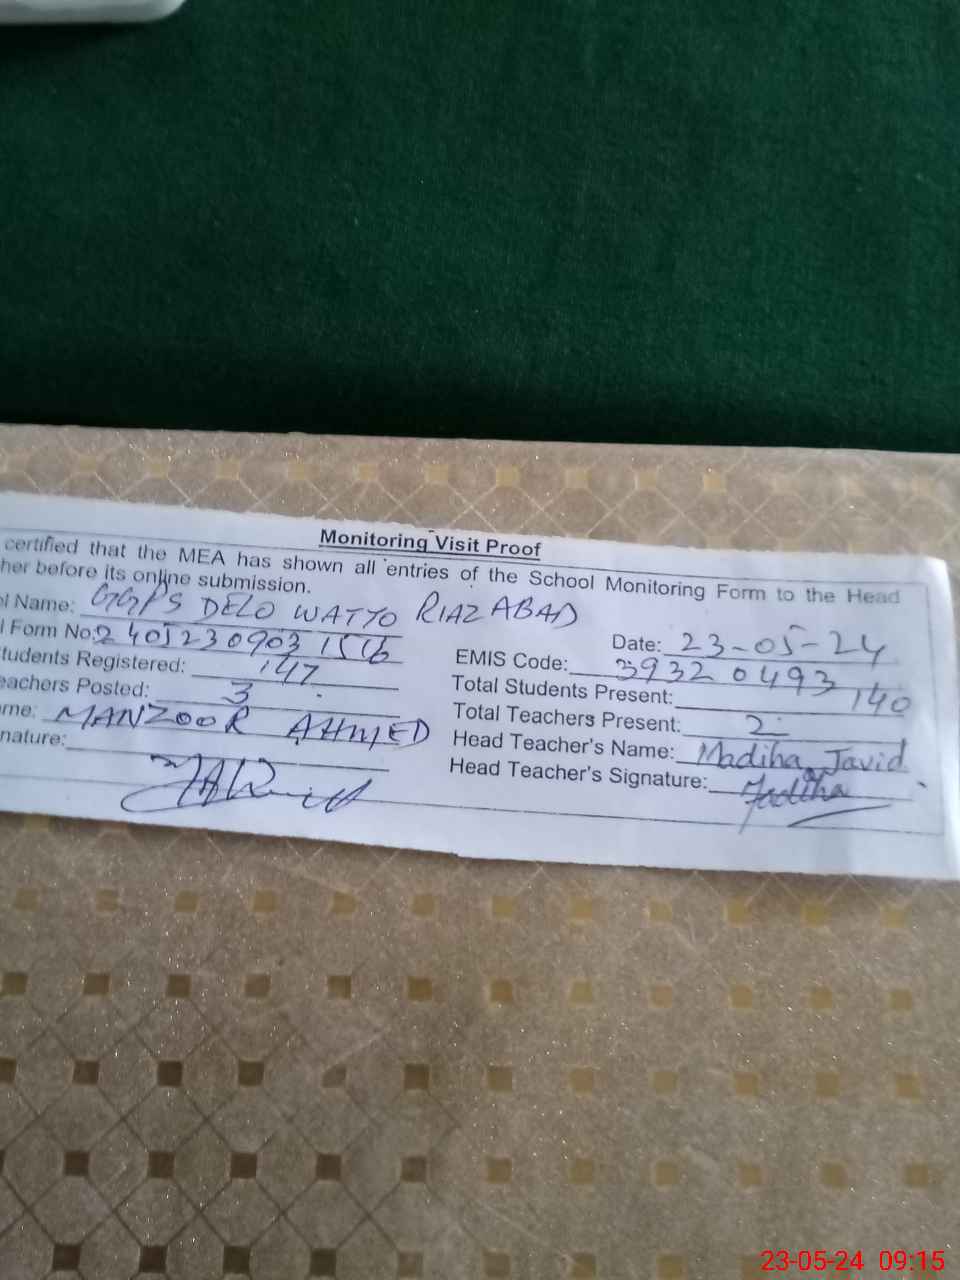 Monitoring Visit Proof
certified that the MEA has shown all entries of the School Monitoring Form to the Head
her before its online submission.
ol Name: GGPS DELO WATTO RIAZABAD
Date: 23-05-24
l Form No: 2405230903 1516
EMIS Code: 39320493
tudents Registered: 147
Total Students Present: 140
eachers Posted: 3
Total Teachers Present: 2
me: MANZOOR AHMED
Head Teacher's Name: Madiha Javid
nature:
Head Teacher's Signature: Madiha
23-05-24 09:15